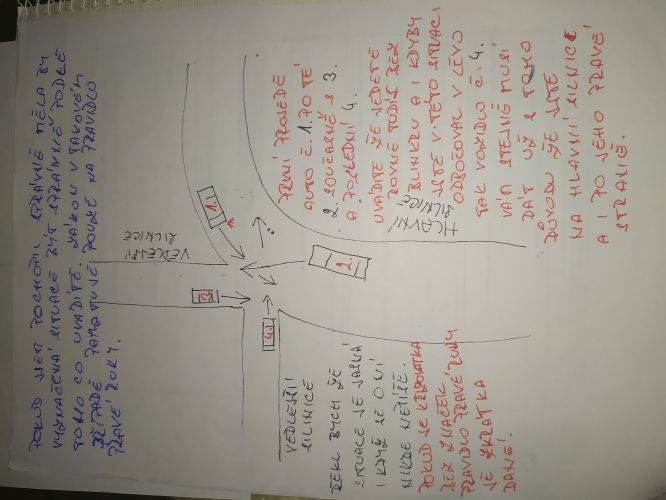 POKUD JSEM POCHOPIL SPRÁVNĚ MĚLA BY
VYZNAČENÁ SITUACE BÝT SPRÁVNĚ PODLE
TOHO CO UVÁDÍTE. ZÁKON V TAKOVÉM
PŘÍPADĚ PAMATUJE POUZE NA PRAVIDLO
PRAVÉ RUKY.
PRVNÍ PROJEDE
AUTO Č. 1. POTÉ
2 SOUČASNĚ S 3.
A POSLEDNÍ 4.
UVÁDÍTE ŽE JEDETE
ROVNĚ TUDÍŽ BEZ
BLINKRU A I KDYBY
JSTE V TÉTO SITUACI
ODBOČOVAL V LEVO
TAK VOZIDLO Č. 4.
VÁM STEJNĚ MUSÍ
DÁT UŽ Z TOHO
DŮVODU ŽE JSTE
NA HLAVNÍ SILNICI
A I PO JEHO PRAVÉ
STRANĚ.
1.
VEDLEJŠÍ
SILNICE
HLAVNÍ
SILNICE
2.
3.
4.
VEDLEJŠÍ
SILNICE
ŘEKL BYCH ŽE
SITUACE JE JASNÁ
I KDYŽ SE O NÍ
NIKDE NEPÍŠE.
POKUD JE KŘIŽOVATKA
BEZ ZNAČEK
PRAVIDLO PRAVÉ RUKY
JE ZKRÁTKA
DANÉ.